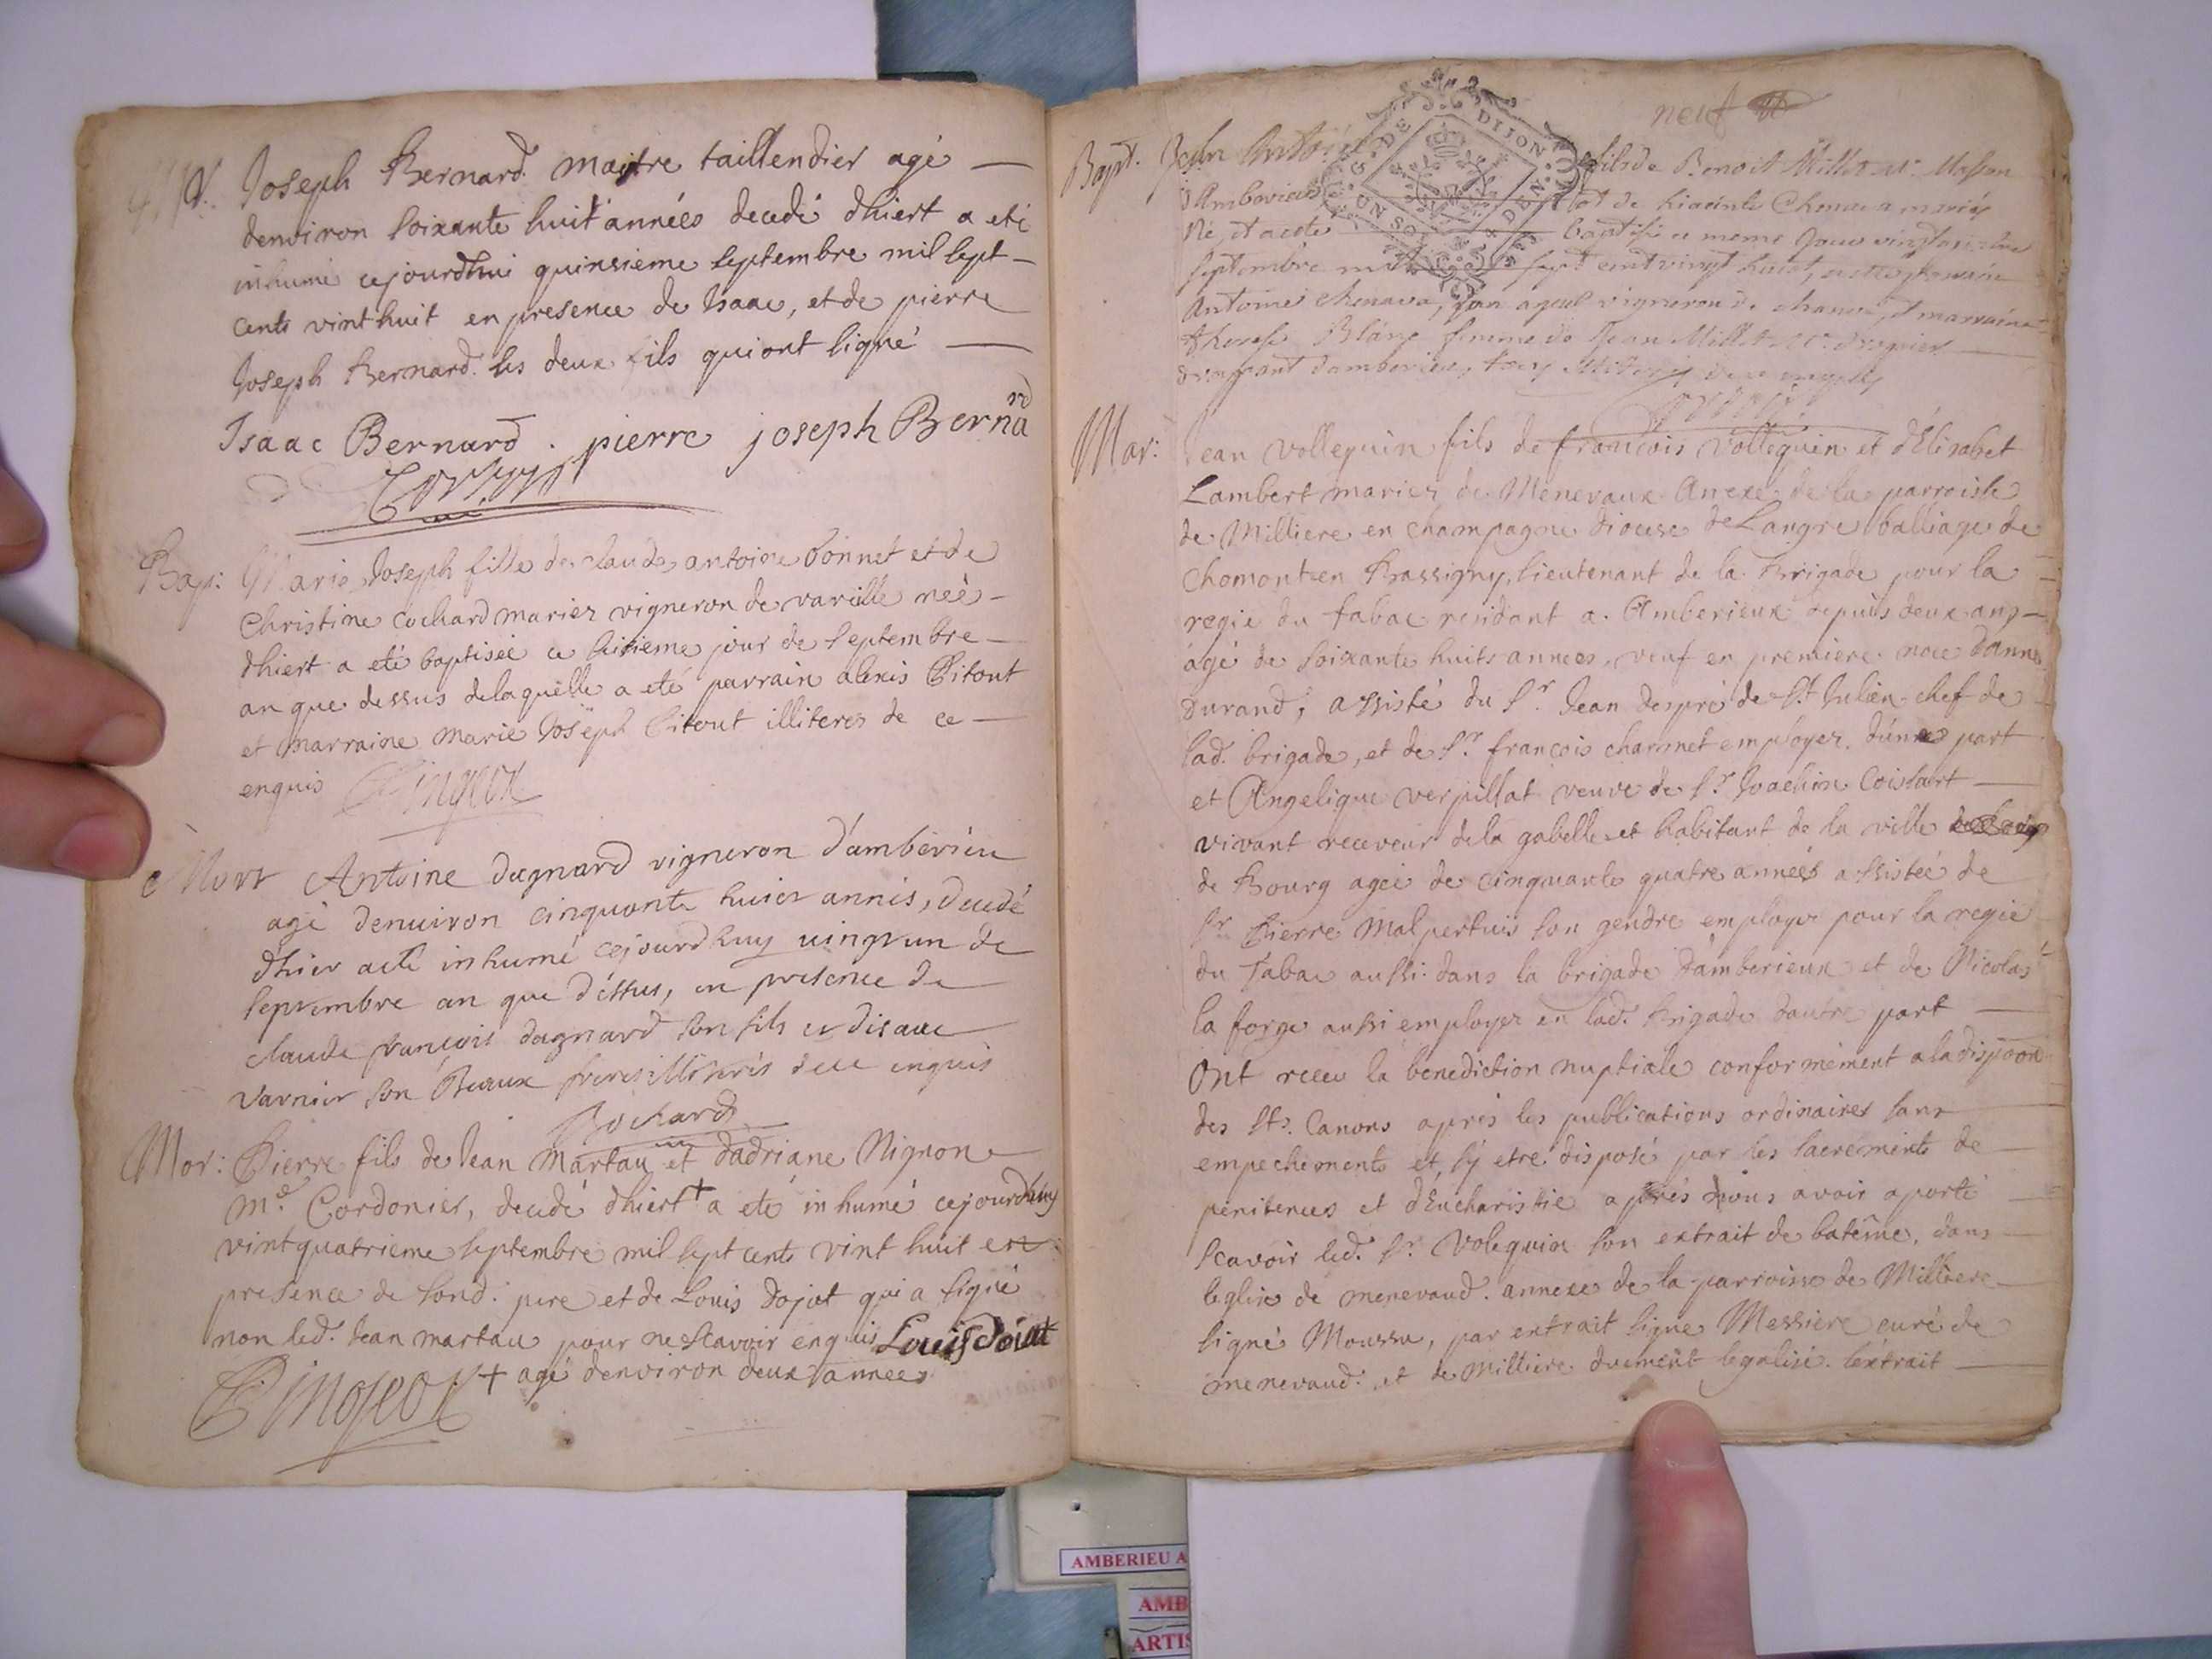 Joseph Bernard maitre taillendier agé
denviron soixante huit années decedé dhiert a eté
inhumé cejourdhui quinsieme septembre mil sept
cents vint huit en presence de Isaac, et de pierre
Joseph Bernard ses deux fils qui ont signé
Isaac Bernard . pierre joseph Bernard
Bap: Marie Joseph fille de claude antoine bonnet et de
Christine cochard mariez vigneron de vareille neé
dhiert a eté baptiseé ce jour de septembre
an que dessus de laquelle a eté parrain alexis Pitout
et marraine marie Joseph Pitout illiteres de ce
enquis
Mort Antoine dagnard vigneron d'amberieu
agé denuiron cinquante huict annés, decedé
dhier a eté inhumé cejourdhuy uingt un de
septembre an que d'éssus, en presence de
claude francois dagnard son fils et disaac
varnier son Beaux frere illiterés de ce enquis
Bochard
Mor: Pierre fils de Jean Martau et dadriane Mignon
Me. Cordonier, decedé dhiert + a eté inhumé cejourdhuy
vint quatrieme septembre mil sept cents vint huit en
presence de sond. pere et de Louis Dojat qui a signé
non led. Jean martau pour ne scavoir enquis Louis doiat
+ agé denviron deux années
neuf
G. DE DIJON
UN SOL
DEN
Bapt. Jean Antoine fils de Benoit Millet Me. Masson
d'Amberieux et de hiacinte Chenava mariéz
Né, et a eté baptisé ce meme Jour vingt
septembre mil sept cent vingt huict, a eté parrain
Antoine chenava, son ayeul vigneron de et marraine
therese Blanc femme de Jean Millet Me.
damberieux, tous de ce enquis
Mar: Jean Vollequin fils de francois Vollequin et d'Elisabet
Lambert mariez de Menevaux Anexe de la parroisse
de Milliere en champagne diocese de Langre balliage de
Chomont en Bassigny, lieutenant de la Brigade pour la
regie du tabac residant a Amberieux depuis deux ans
agé de soixante huits années, veuf en premiere noce d'anne
Durand, assisté du Sr. Jean despré de St. Julien chef de
lad. brigade, et de Sr. francois charmet employez, dunne part
et Angelique verpillat veuve de Sr. Joachim Coissart
vivant receveur de la gabelle et habitant de la ville
de Bourg ageé de cinquante quatre années assisteé de
Sr. Pierre Malpertuis son gendre employé pour la regie
du Tabac aussi dans la brigade d'amberieux et de Nicolas
la forge aussi employez en lad. Brigade dautre part
Ont receu la benediction nuptiale conformément a la dispoon
des Sts. Canons aprés les publications ordinaires sans
empechements et, sy etre disposé par les sacrements de
penitences et d'Eucharistie aprés nous avoir aporté
Scavoir led. Sr. Volequin son extrait de batême, dans
leglise de menevaud. annexe de la parroisse de Milliere
signé Moussu, par extrait signé Messiere curé de
menevaud. et de Milliere duement legalisé. lextrait